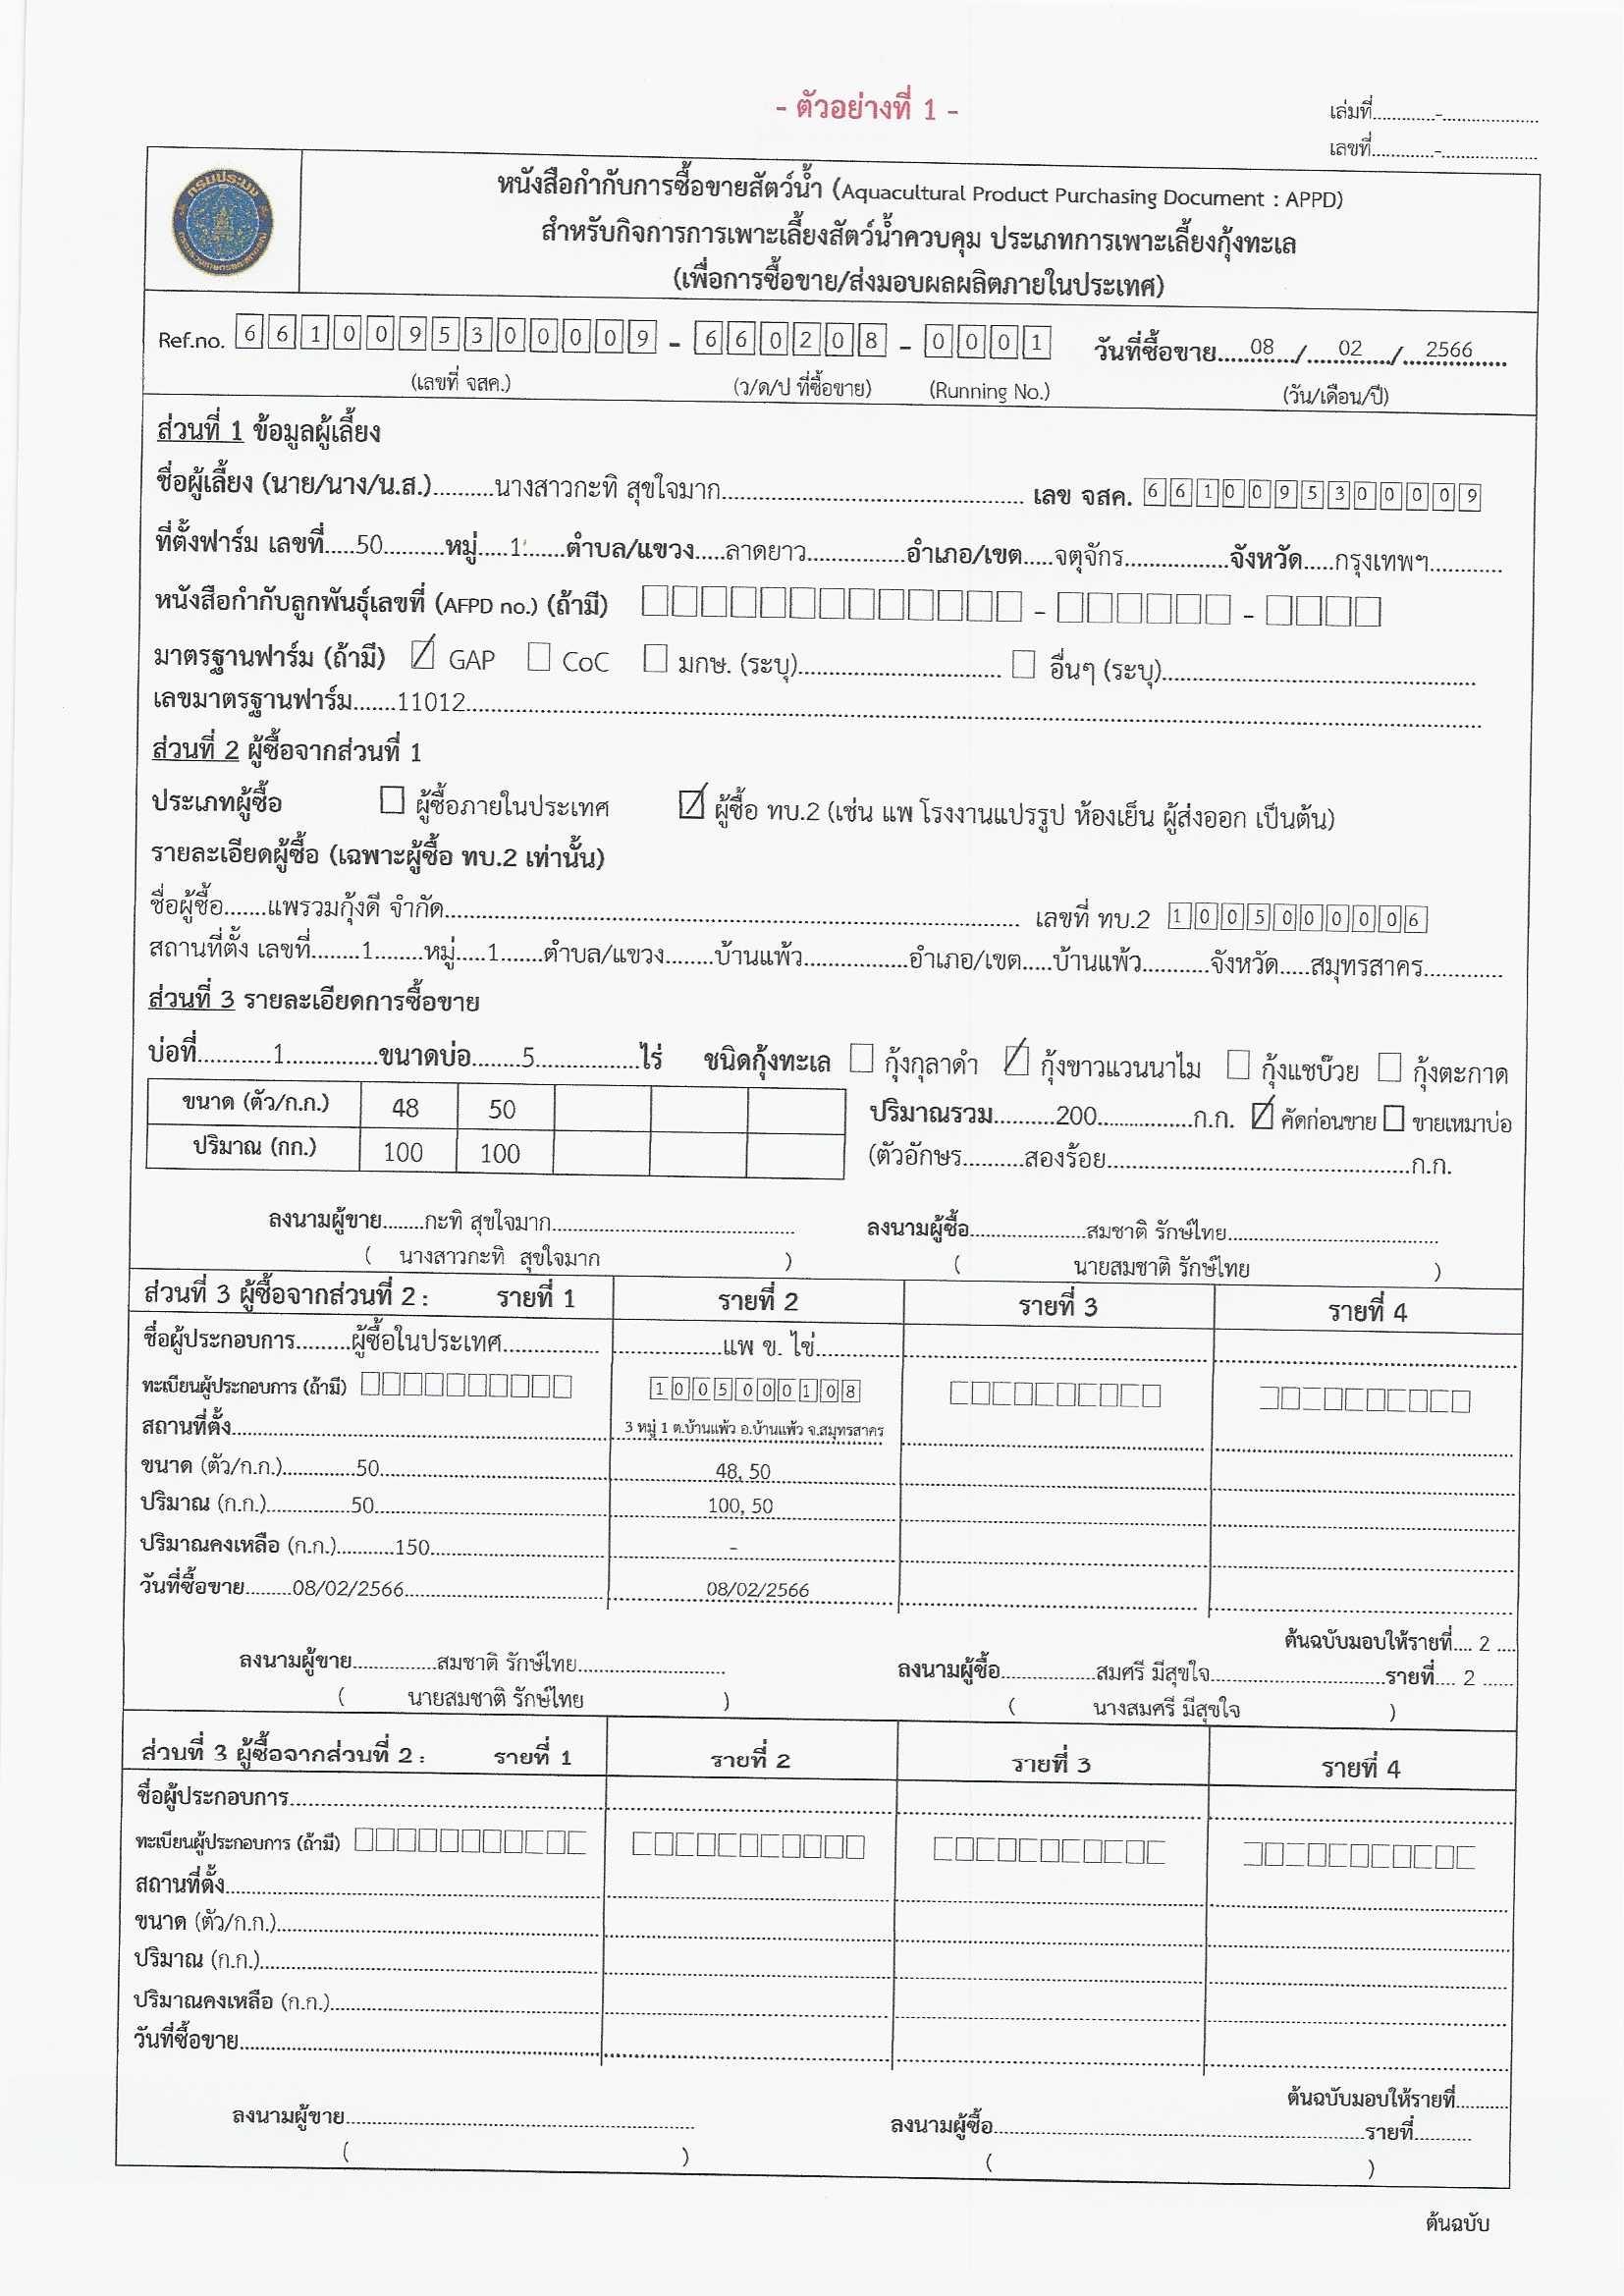 - ตัวอย่างที่ 1 -
เล่มที่.............-...................
เลขที่.............-...................
กรมประมง
กระทรวงเกษตรและสหกรณ์
หนังสือกำกับการซื้อขายสัตว์น้ำ (Aquacultural Product Purchasing Document : APPD)
สำหรับกิจการการเพาะเลี้ยงสัตว์น้ำควบคุม ประเภทการเพาะเลี้ยงกุ้งทะเล
(เพื่อการซื้อขาย/ส่งมอบผลผลิตภายในประเทศ)
Ref.no. 6610095300009 - 660208 - 0001 วันที่ซื้อขาย......08...../.....02...../....2566......
(เลขที่ จสค.) (ว/ด/ป ที่ซื้อขาย) (Running No.) (วัน/เดือน/ปี)
ส่วนที่ 1 ข้อมูลผู้เลี้ยง
ชื่อผู้เลี้ยง (นาย/นาง/น.ส.)..........นางสาวกะทิ สุขใจมาก.......................... เลข จสค. 6610095300009
ที่ตั้งฟาร์ม เลขที่.....50..........หมู่.....1.......ตำบล/แขวง.....ลาดยาว................อำเภอ/เขต.....จตุจักร.................จังหวัด.....กรุงเทพฯ............
หนังสือกำกับลูกพันธุ์เลขที่ (AFPD no.) (ถ้ามี) - -
มาตรฐานฟาร์ม (ถ้ามี) GAP CoC มกษ. (ระบุ)................................. อื่นๆ (ระบุ).................................
เลขมาตรฐานฟาร์ม.......11012.......................................
ส่วนที่ 2 ผู้ซื้อจากส่วนที่ 1
ประเภทผู้ซื้อ ผู้ซื้อภายในประเทศ ผู้ซื้อ ทบ.2 (เช่น แพ โรงงานแปรรูป ห้องเย็น ผู้ส่งออก เป็นต้น)
รายละเอียดผู้ซื้อ (เฉพาะผู้ซื้อ ทบ.2 เท่านั้น)
ชื่อผู้ซื้อ.......แพรวมกุ้งดี จำกัด....................................... เลขที่ ทบ.2 1005000006
สถานที่ตั้ง เลขที่........1........หมู่.....1.......ตำบล/แขวง........บ้านแพ้ว.................อำเภอ/เขต.....บ้านแพ้ว...........จังหวัด.....สมุทรสาคร.............
ส่วนที่ 3 รายละเอียดการซื้อขาย
บ่อที่............1...............ขนาดบ่อ........5.................ไร่ ชนิดกุ้งทะเล กุ้งกุลาดำ กุ้งขาวแวนนาไม กุ้งแชบ๊วย กุ้งตะกาด
ขนาด (ตัว/ก.ก.) 48 50
ปริมาณ (กก.) 100 100
ปริมาณรวม..........200................ก.ก. คัดก่อนขาย ขายเหมาบ่อ
(ตัวอักษร..........สองร้อย.................................ก.ก.
ลงนามผู้ขาย.......กะทิ สุขใจมาก.............................. ลงนามผู้ซื้อ...................สมชาติ รักษ์ไทย..............................
( นางสาวกะทิ สุขใจมาก ) ( นายสมชาติ รักษ์ไทย )
ส่วนที่ 3 ผู้ซื้อจากส่วนที่ 2 : รายที่ 1 รายที่ 2 รายที่ 3 รายที่ 4
ชื่อผู้ประกอบการ.........ผู้ซื้อในประเทศ................ ..................แพ ข. ไข่..............
ทะเบียนผู้ประกอบการ (ถ้ามี) 1005000108
สถานที่ตั้ง.............................. 3 หมู่ 1 ต.บ้านแพ้ว อ.บ้านแพ้ว จ.สมุทรสาคร
ขนาด (ตัว/ก.ก.).............50.............................. 48, 50
ปริมาณ (ก.ก.)...............50.............................. 100, 50
ปริมาณคงเหลือ (ก.ก.)..........150.............................. -
วันที่ซื้อขาย.........08/02/2566.............................. 08/02/2566
ต้นฉบับมอบให้รายที่.... 2 ....
ลงนามผู้ขาย...............สมชาติ รักษ์ไทย......................... ลงนามผู้ซื้อ.................สมศรี มีสุขใจ..............................รายที่.... 2 ......
( นายสมชาติ รักษ์ไทย ) ( นางสมศรี มีสุขใจ )
ส่วนที่ 3 ผู้ซื้อจากส่วนที่ 2 : รายที่ 1 รายที่ 2 รายที่ 3 รายที่ 4
ชื่อผู้ประกอบการ..............................
ทะเบียนผู้ประกอบการ (ถ้ามี)
สถานที่ตั้ง..............................
ขนาด (ตัว/ก.ก.)..............................
ปริมาณ (ก.ก.)..............................
ปริมาณคงเหลือ (ก.ก.)..............................
วันที่ซื้อขาย..............................
ต้นฉบับมอบให้รายที่..........
ลงนามผู้ขาย.............................. ลงนามผู้ซื้อ..............................รายที่..........
( ) ( )
ต้นฉบับ